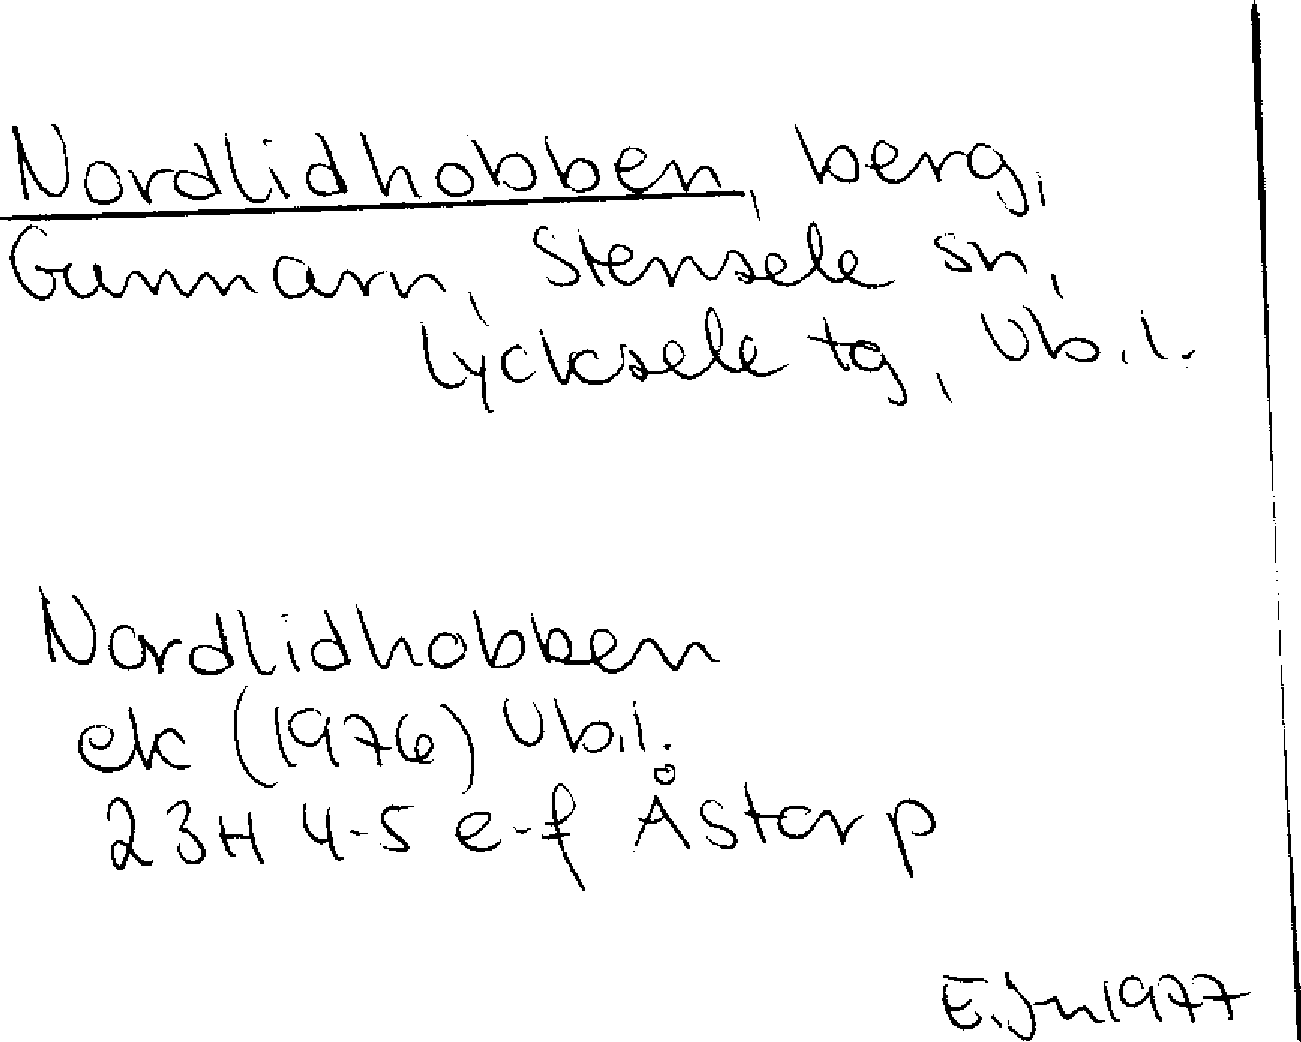 Nordlidhobben, berg,
Gunnarn, Stensele sn,
Lycksele tg, Vb.l.
Nordlidhobben
ek (1976) Vb.l.
23H 4-5 e-f Åstorp
E.Jn 1977